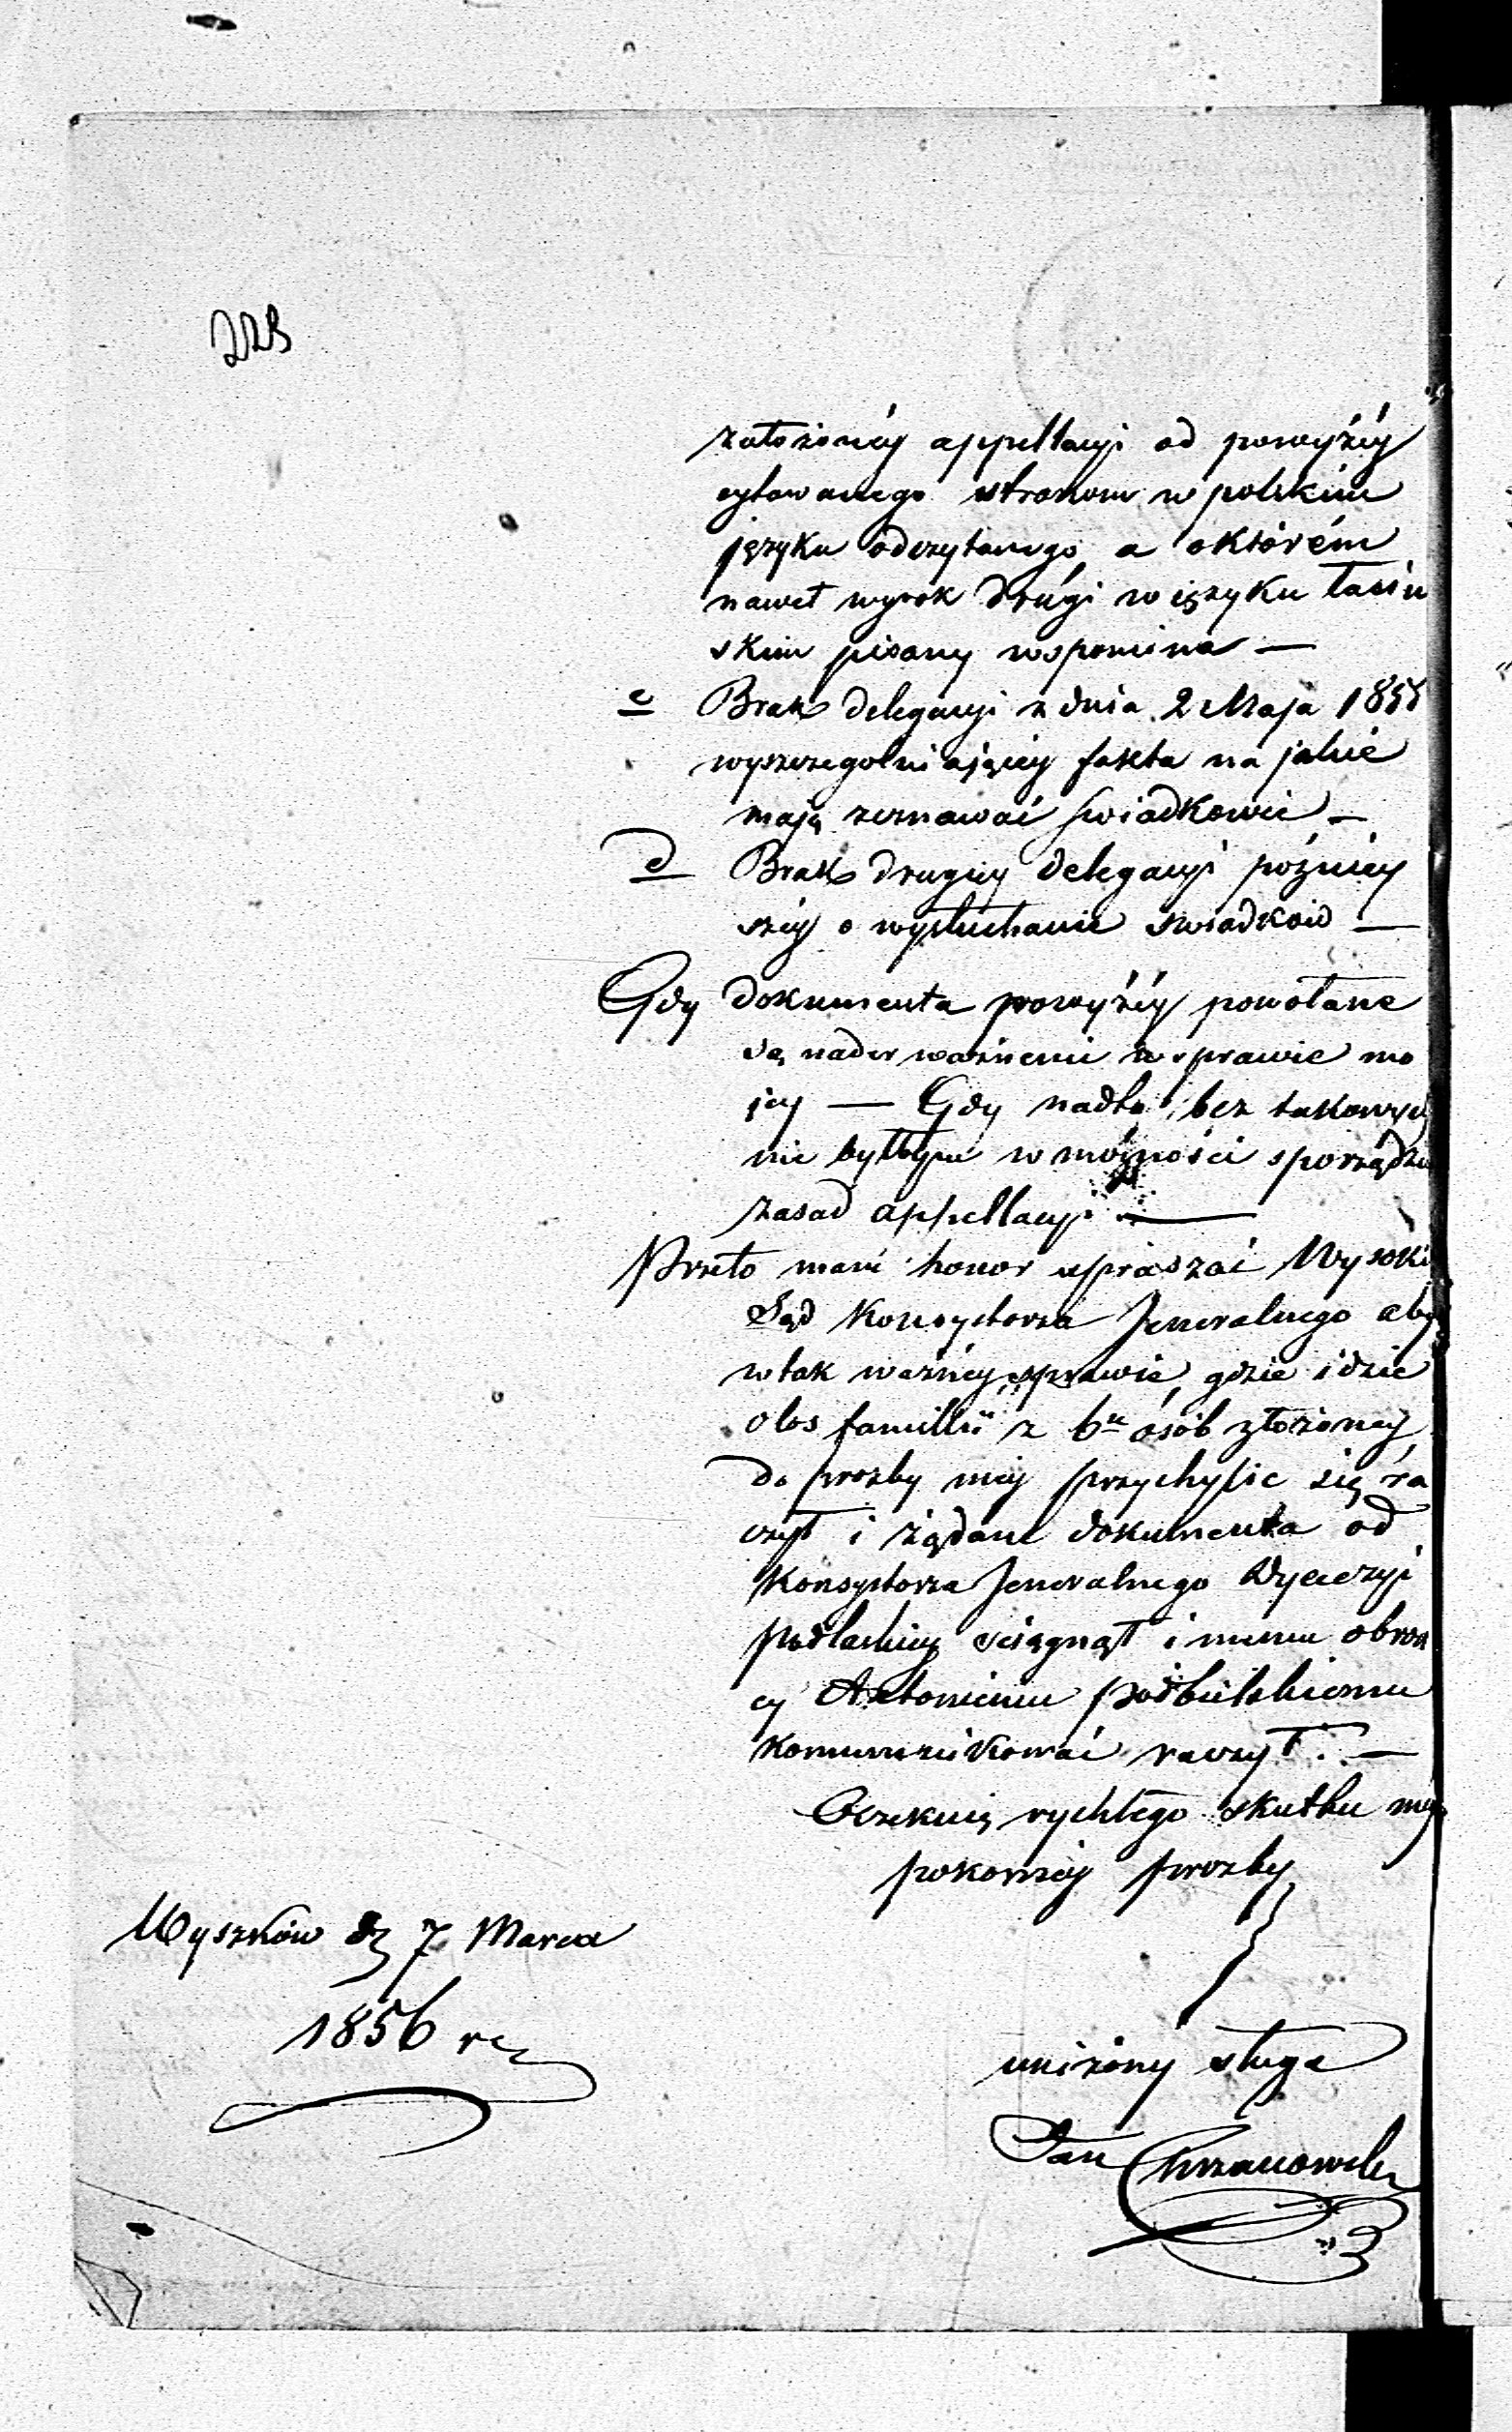 założonéy appellacyi od powyżéy
cytowanego stronom w polskim
języku odczytanego, a októrém
nawet wyrok drugi w ięzyku łaciń
skim pisany wspomina —
c Brak delegacyi z dnia 2 Maja 1855
wyszczegolniaiącéy fakta na jakie
mają zeznawać swiadkowie —
d Brak drugiey delegacyi poźniey
széy o wysłuchanie swiadków —
Gdy dokumenta powyżéy powołane
są nader ważnemi w sprawie mo
jey — Gdy nadto bez takowych
nie byłbym w możności sporządzić
zasad appellacyi —
Przeto mam honor upraszać Wysoki
Sąd Konsystorza Jeneralnego aby
w tak ważnéy sprawie, gdzie idzie
o los familii z 6u osób złożoney
do prozby méy przychylic się ra
czył i żądane dokumenta od
Konsystorza Jeneralnego Dyecezyi
podlaskiéy sciągnął i memu obroń
cy Antoniemu Podbielskiemu
kommunikować raczył. —
Oczekuię rychłego skutku méy
pokornéy prozby
Wyszków d. 7 Marca
1856 r.
uniżony sługa
Jan Chrzanowski